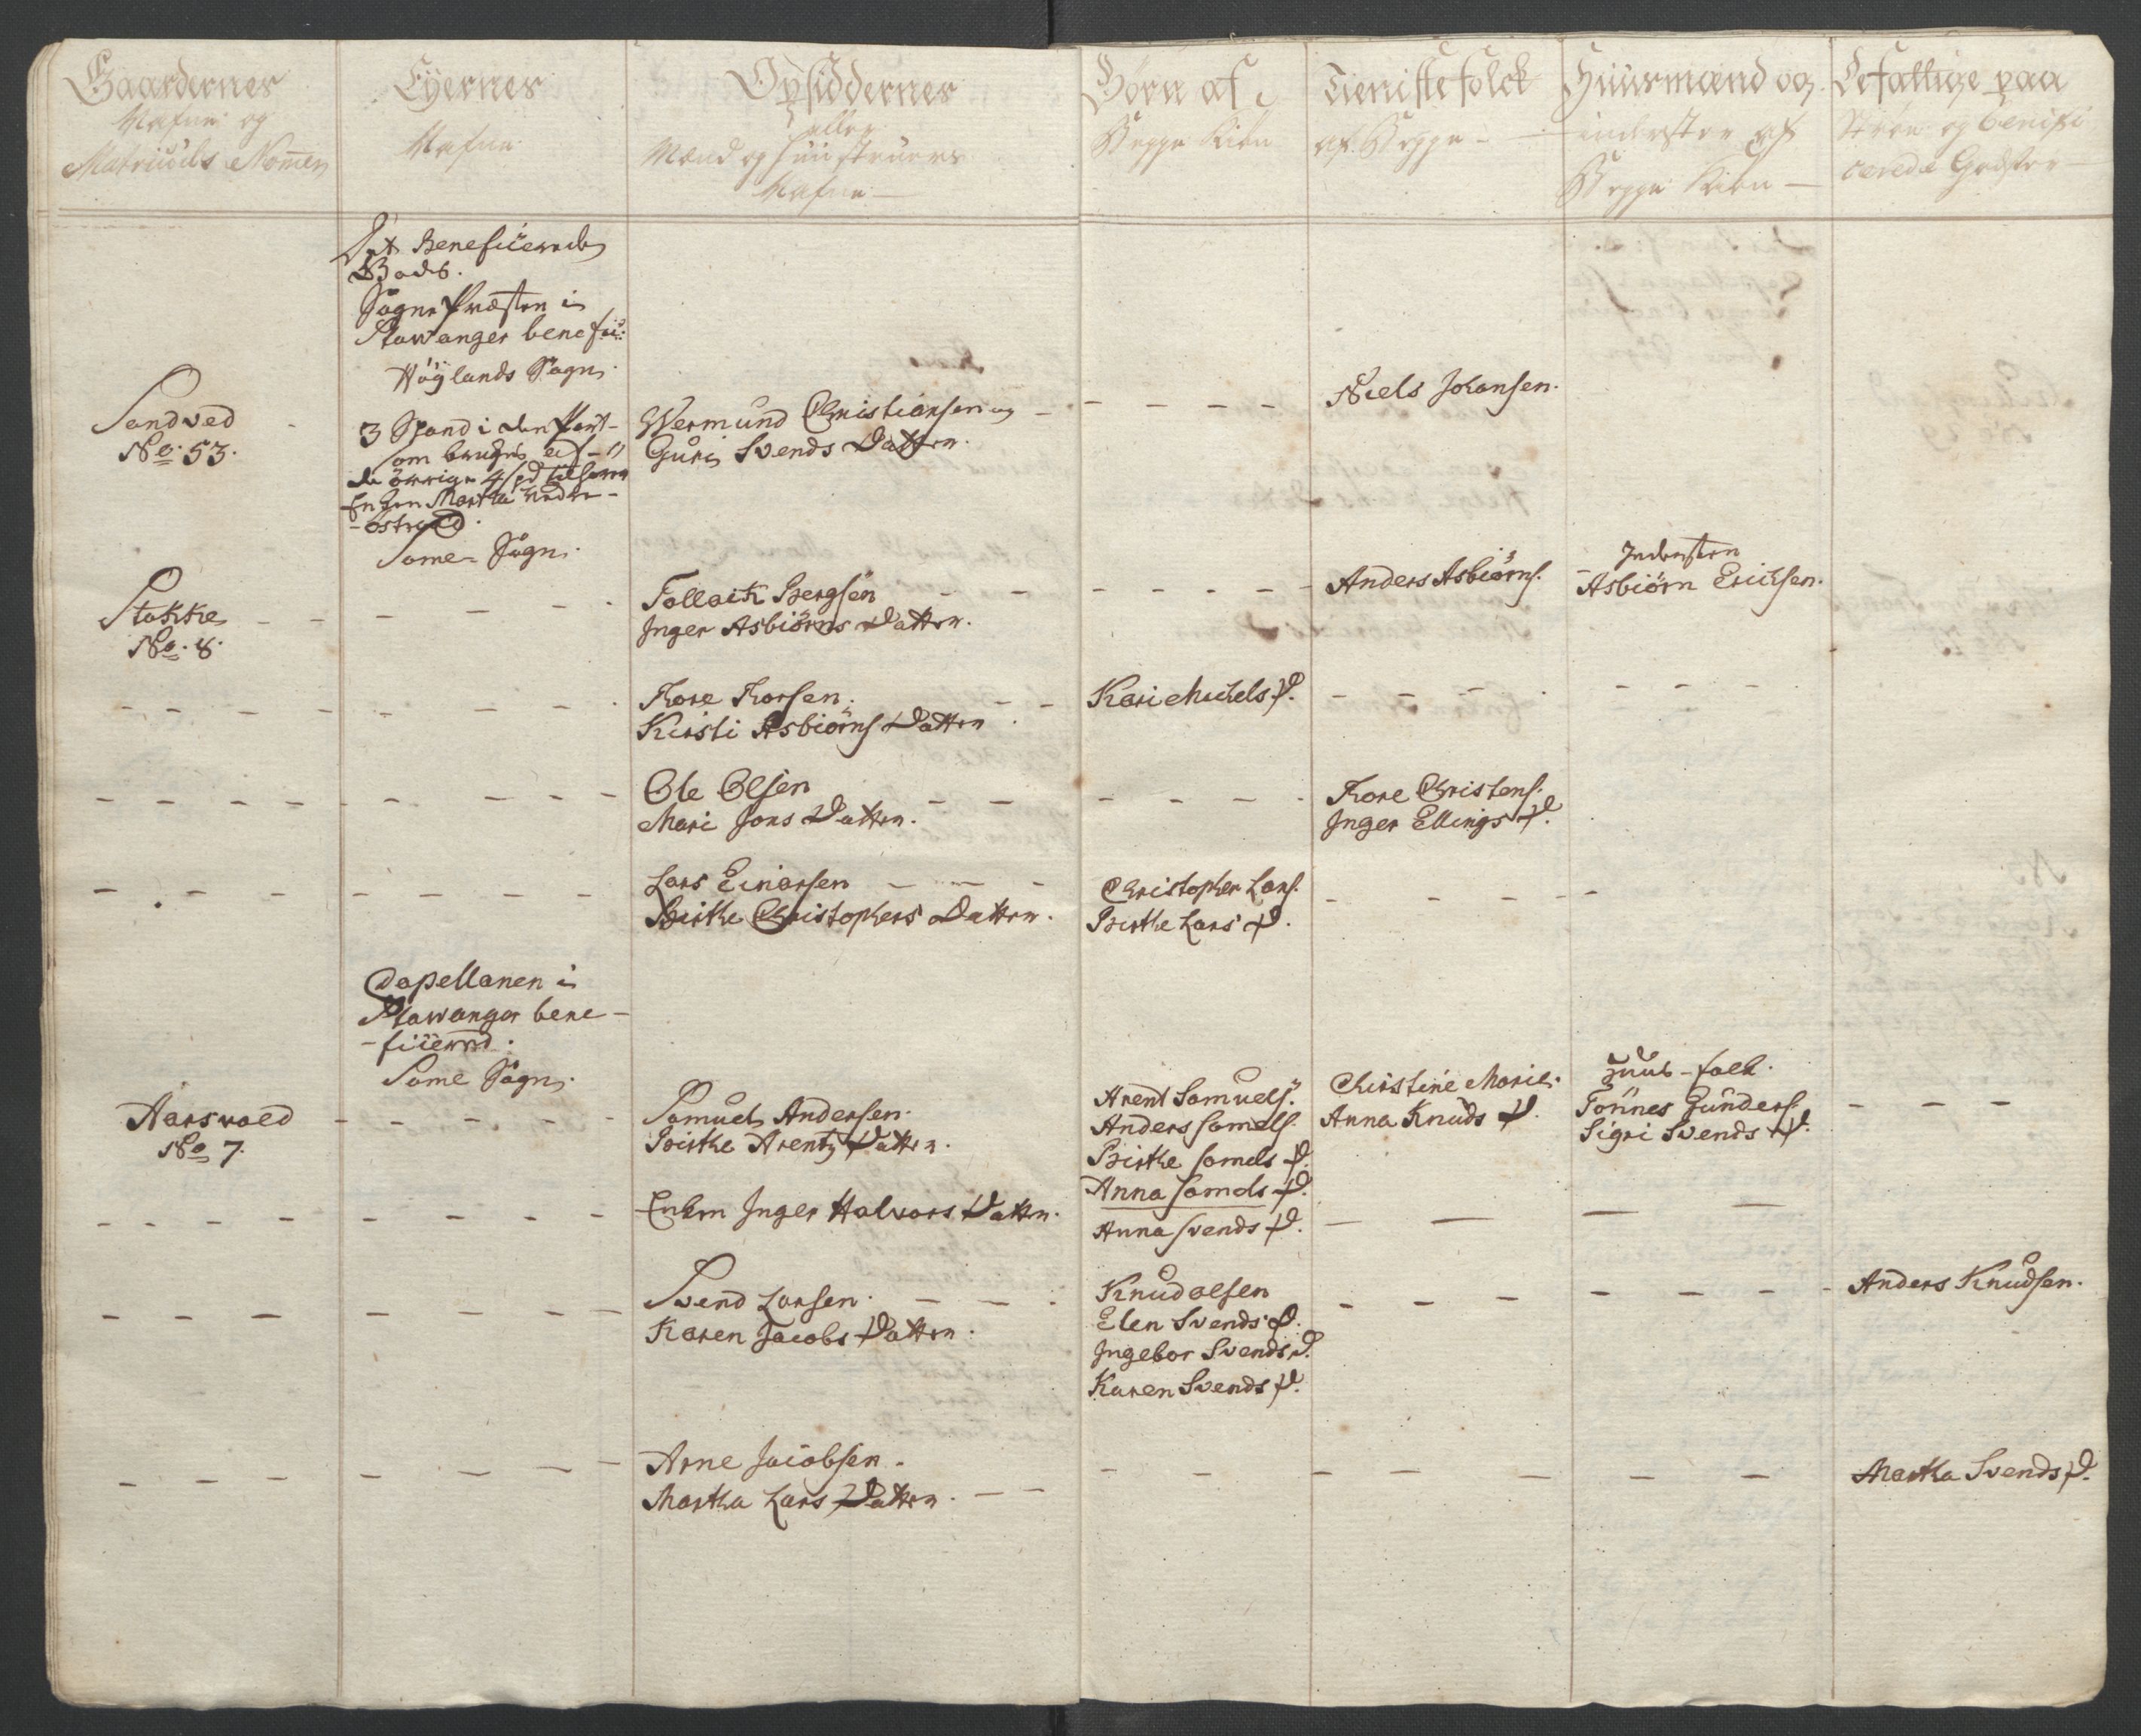 Gaardernes
Nafne og
Matriculs Nommer
Eyernes
Nafne
Opsiddernes
eller
Mænd og Huustruers
Nafne
Börn af
Begge Kiön
Tieniste folck
af Begge
Huusmænd og
inderster af
Begge Kiön
Fattige paa
Det Beneficerede
Gods.
Sogne Præsten i
Stawanger benefici:
Höylands Sogn.
Sandved
No. 53.
3 Spand i den Part
som bruges af
de övrige 4 spd tilhører
Enken Martha Nedre
Östraad.
Wermund Christiansen og
Guri Svends Datter.
Niels Johansen.
Same Sogn.
Stokke
No. 8.
Tollack Bergsen
Inger Asbiörns Datter.
Anders Asbiörns.
Indersten
Asbiörn Erichsen.
Tore Torsen.
Kirsti Asbiörns Datter
Kari Michels D.
Ole Olsen
Mari Jons Datter.
Tore Christens.
Inger Ellings D.
Lars Einarsen
Birthe Christophers Datter.
Christopher Lars.
Birthe Lars D.
Capellanen i
Stawanger bene-
-ficeered.
Same Sogn.
Aarsvold
No 7.
Samuel Andersen.
Birthe Arentz Datter.
Arent Samuels.
Anders Samels.
Birthe Samels D.
Anna Samels D.
Christine Marie.
Anna Knuds D.
Huus-folk.
Tönnes Gunders.
Sigri Svends D.
Enken Inger Halvors Datter.
Anna Svends D.
Svend Larsen.
Karen Jacobs Datter.
Knud Olsen
Elen Svends D.
Ingebor Svends D.
Karen Svends D.
Anders Knudsen.
Arne Jacobsen.
Martha Lars Datter.
Martha Svends D.